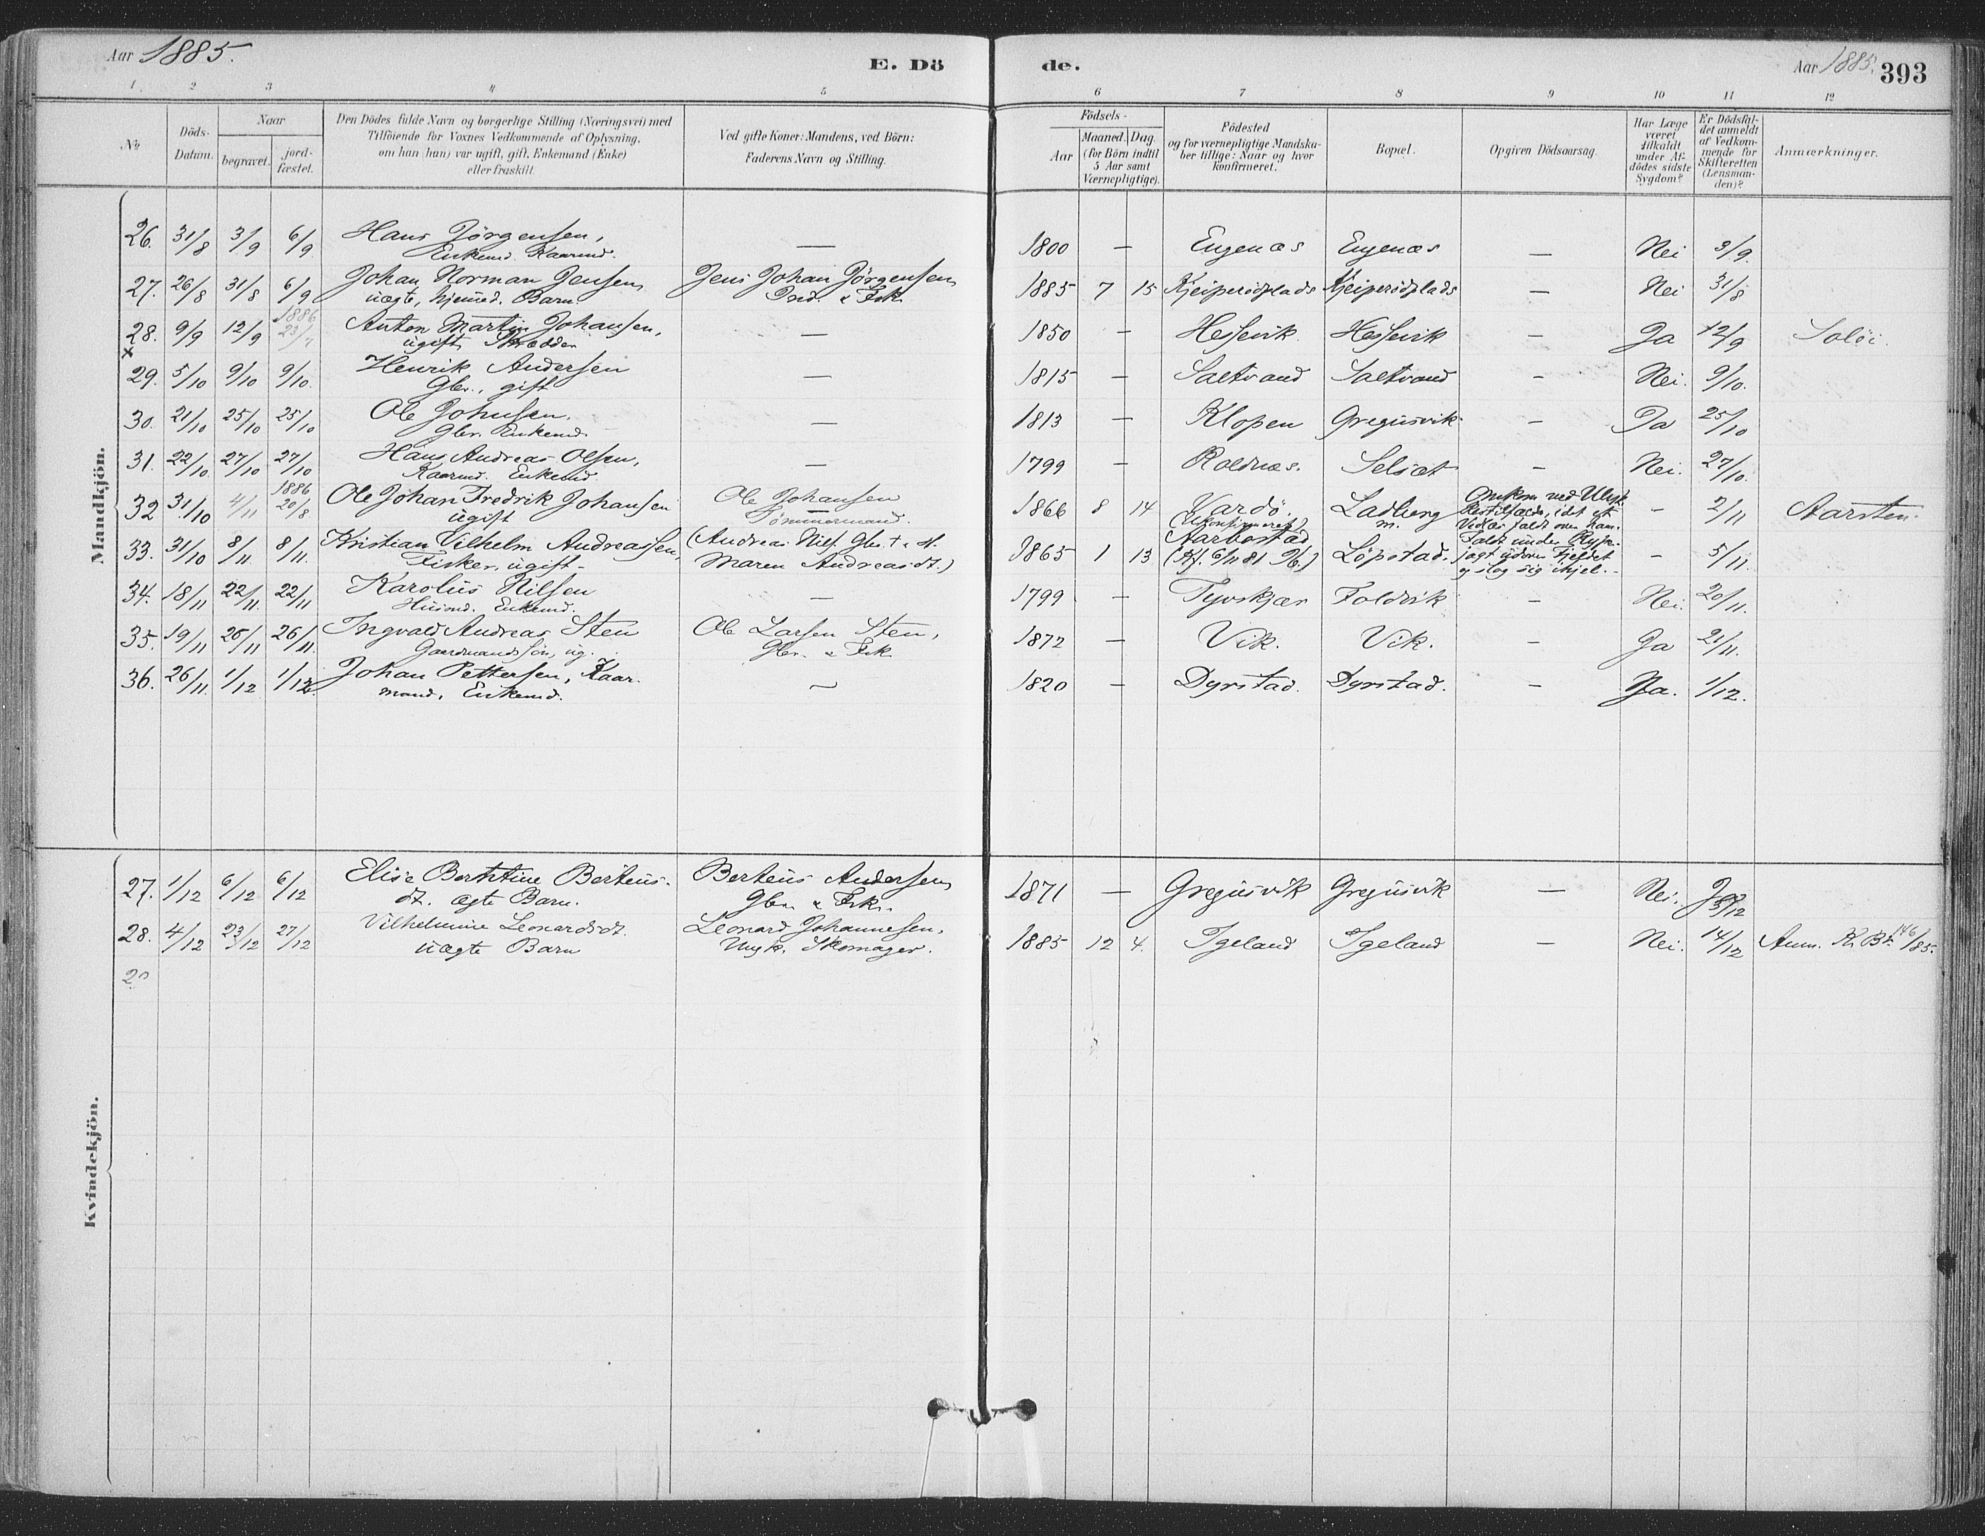 Aar 1885.
E. Dö
de.
Aar 1885.
393
1
2
3
4
5
6
7
8
9
10
11
12
No
Döds-
Datum.
Naar
begravet.
jord-
fæstet.
Den Dödes fulde Navn og borgerlige Stilling (Næringsvei) med
Tilföiende for Voxnes Vedkommende af Oplysning,
om han (hun) var ugift, gift, Enkemand (Enke)
eller fraskilt.
Ved gifte Koner: Mandens, ved Börn:
Faderens Navn og Stilling.
Födsels-
Aar
Maaned. Dag.
(for Börn indtil
5 Aar samt
Værnepligtige).
Födested
og for værnepligtige Mandska-
ber tillige: Naar og hvor
konfirmeret.
Bopæl.
Opgiven Dödsaarsag.
Har Læge
været
tilkaldt
under Af-
dödes sidste
Sygdom?
Er Dödsfal-
det anmeldt
af Vedkom-
mende for
Skifteretten
(Lensman-
den)?
Anmærkninger.
Mandkjön.
26. 31/8 3/9 6/9 Hans Jørgensen, — 1800 — Engenæs Engenæs — Nei 3/9.
Enkemd. Kaarmd.
27. 26/8 31/8 6/9 Johan Norman Jensen, Jens Johan Jörgensen 1885 7 15 Kjeiperödplads Kjeiperödplads — Nei 31/8
uægte, hjemmed. Barn & Fisk.
1886
28. 9/9 12/9 23/7 Anton Martin Johansen, — 1850 — Hessevik. Hessevik — Ja 12/9 Soløi.
x ugift, Skrædder
29. 5/10 9/10 9/10. Henrik Andersen — 1815 — Saltvand Saltvand — Nei. 9/10.
Gbr., gift
30. 21/10 25/10 25/10 Ole Johnsen. — 1813 — Klopen Gregusvik — Ja 25/10
Gbr. Enkemd.
31. 22/10. 27/10 27/10 Hans Andreas Olsen, — 1799 — Roldnæs. Selsæt — Nei. 27/10.
Kaarmd. Enkemd
1886
32 31/10 4/11 20/8 Ole Johan Fredrik Johansen Ole Johansen 1866 8 14 Vardö. Ladberg — 2/11 Aarsten.
ugift Tömmermand. (Ukonfirmeret)
Omkom ved Ulyk-
kestilfælde, idet et
Vedlæs faldt over ham.
33. 31/10 8/11 8/11. Kristian Vilhelm Andreassen, (Andreas Nils. Gbr. † & H. 1865 1 13 Aarbostad Löpstad. — 5/11.
Fisker, ugift. Maren Andreasdt.) (Kf. 6/11 81 Ib.)
Faldt under Rype-
jagt udover Fjeldet
og slog sig ihjel.
34. 18/11 22/11. 22/11 Karolus Nilsen — 1799 — Tyvskjær Foldvik — Nei. 20/11.
Husmd. Enkemd.
35. 19/11 26/11 26/11. Ingvald Andreas Sten Ole Larsen Sten, 1872 — Vik. Vik. — Ja 21/11.
Gaardmandssön, ug. Gbr. & Fisk
36. 26/11. 1/12 1/12. Johan Pettersen, Kaar- — 1820 — Dyrstad. Dyrstad. — Ja. 1/12.
mand, Enkemd.
Kvindekjön.
27. 1/12 6/12 6/12 Elise Berntine Berteus- Berteus Andersen, 1871 — Gregusvik Gregusvik — Nei. Ja
dt. ægte Barn. Gbr. & Fisk. /12
28. 4/12 23/12 27/12 Vilhelmine Leonardsdt. Leonard Johannesen, 1885 12 4. Igeland Igeland — Nei. 14/12 Anm. K. B. 146/85.
uægte Barn Ungk. Skomager.